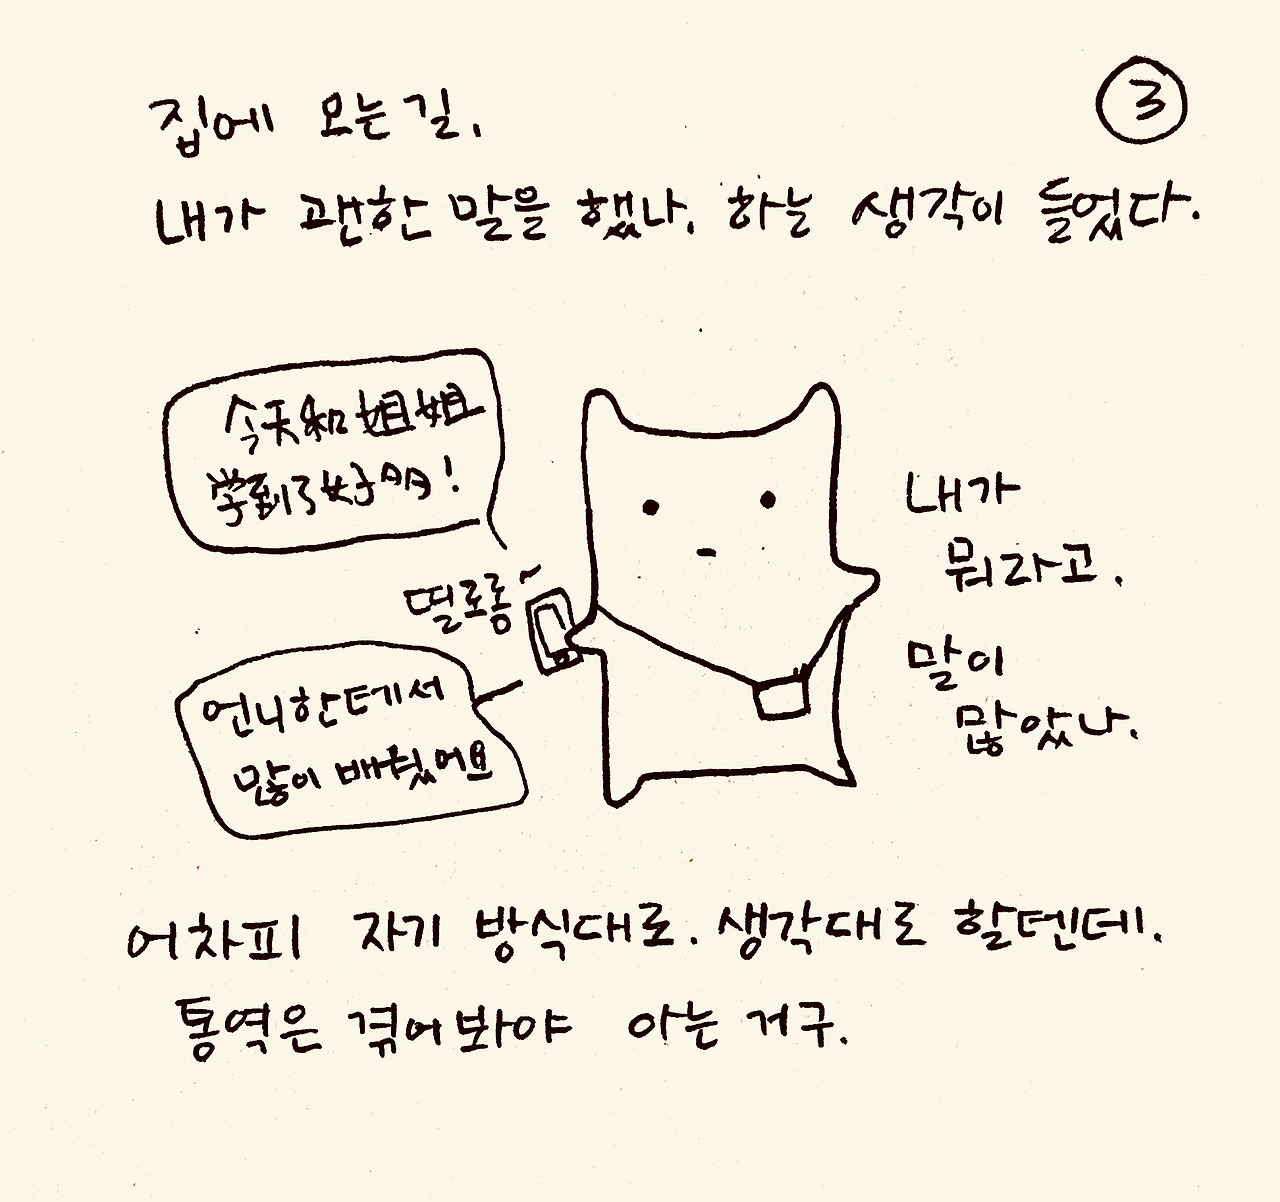 ③
집에 오는 길.
내가 괜한 말을 했나. 하는 생각이 들었다.
今天和姐姐
学到了好多!
떨로롱~
언니한테서
많이 배웠어요
내가
뭐라고.
말이
많았나.
어차피 자기 방식대로. 생각대로 할텐데.
통역은 겪어봐야 아는 거구.